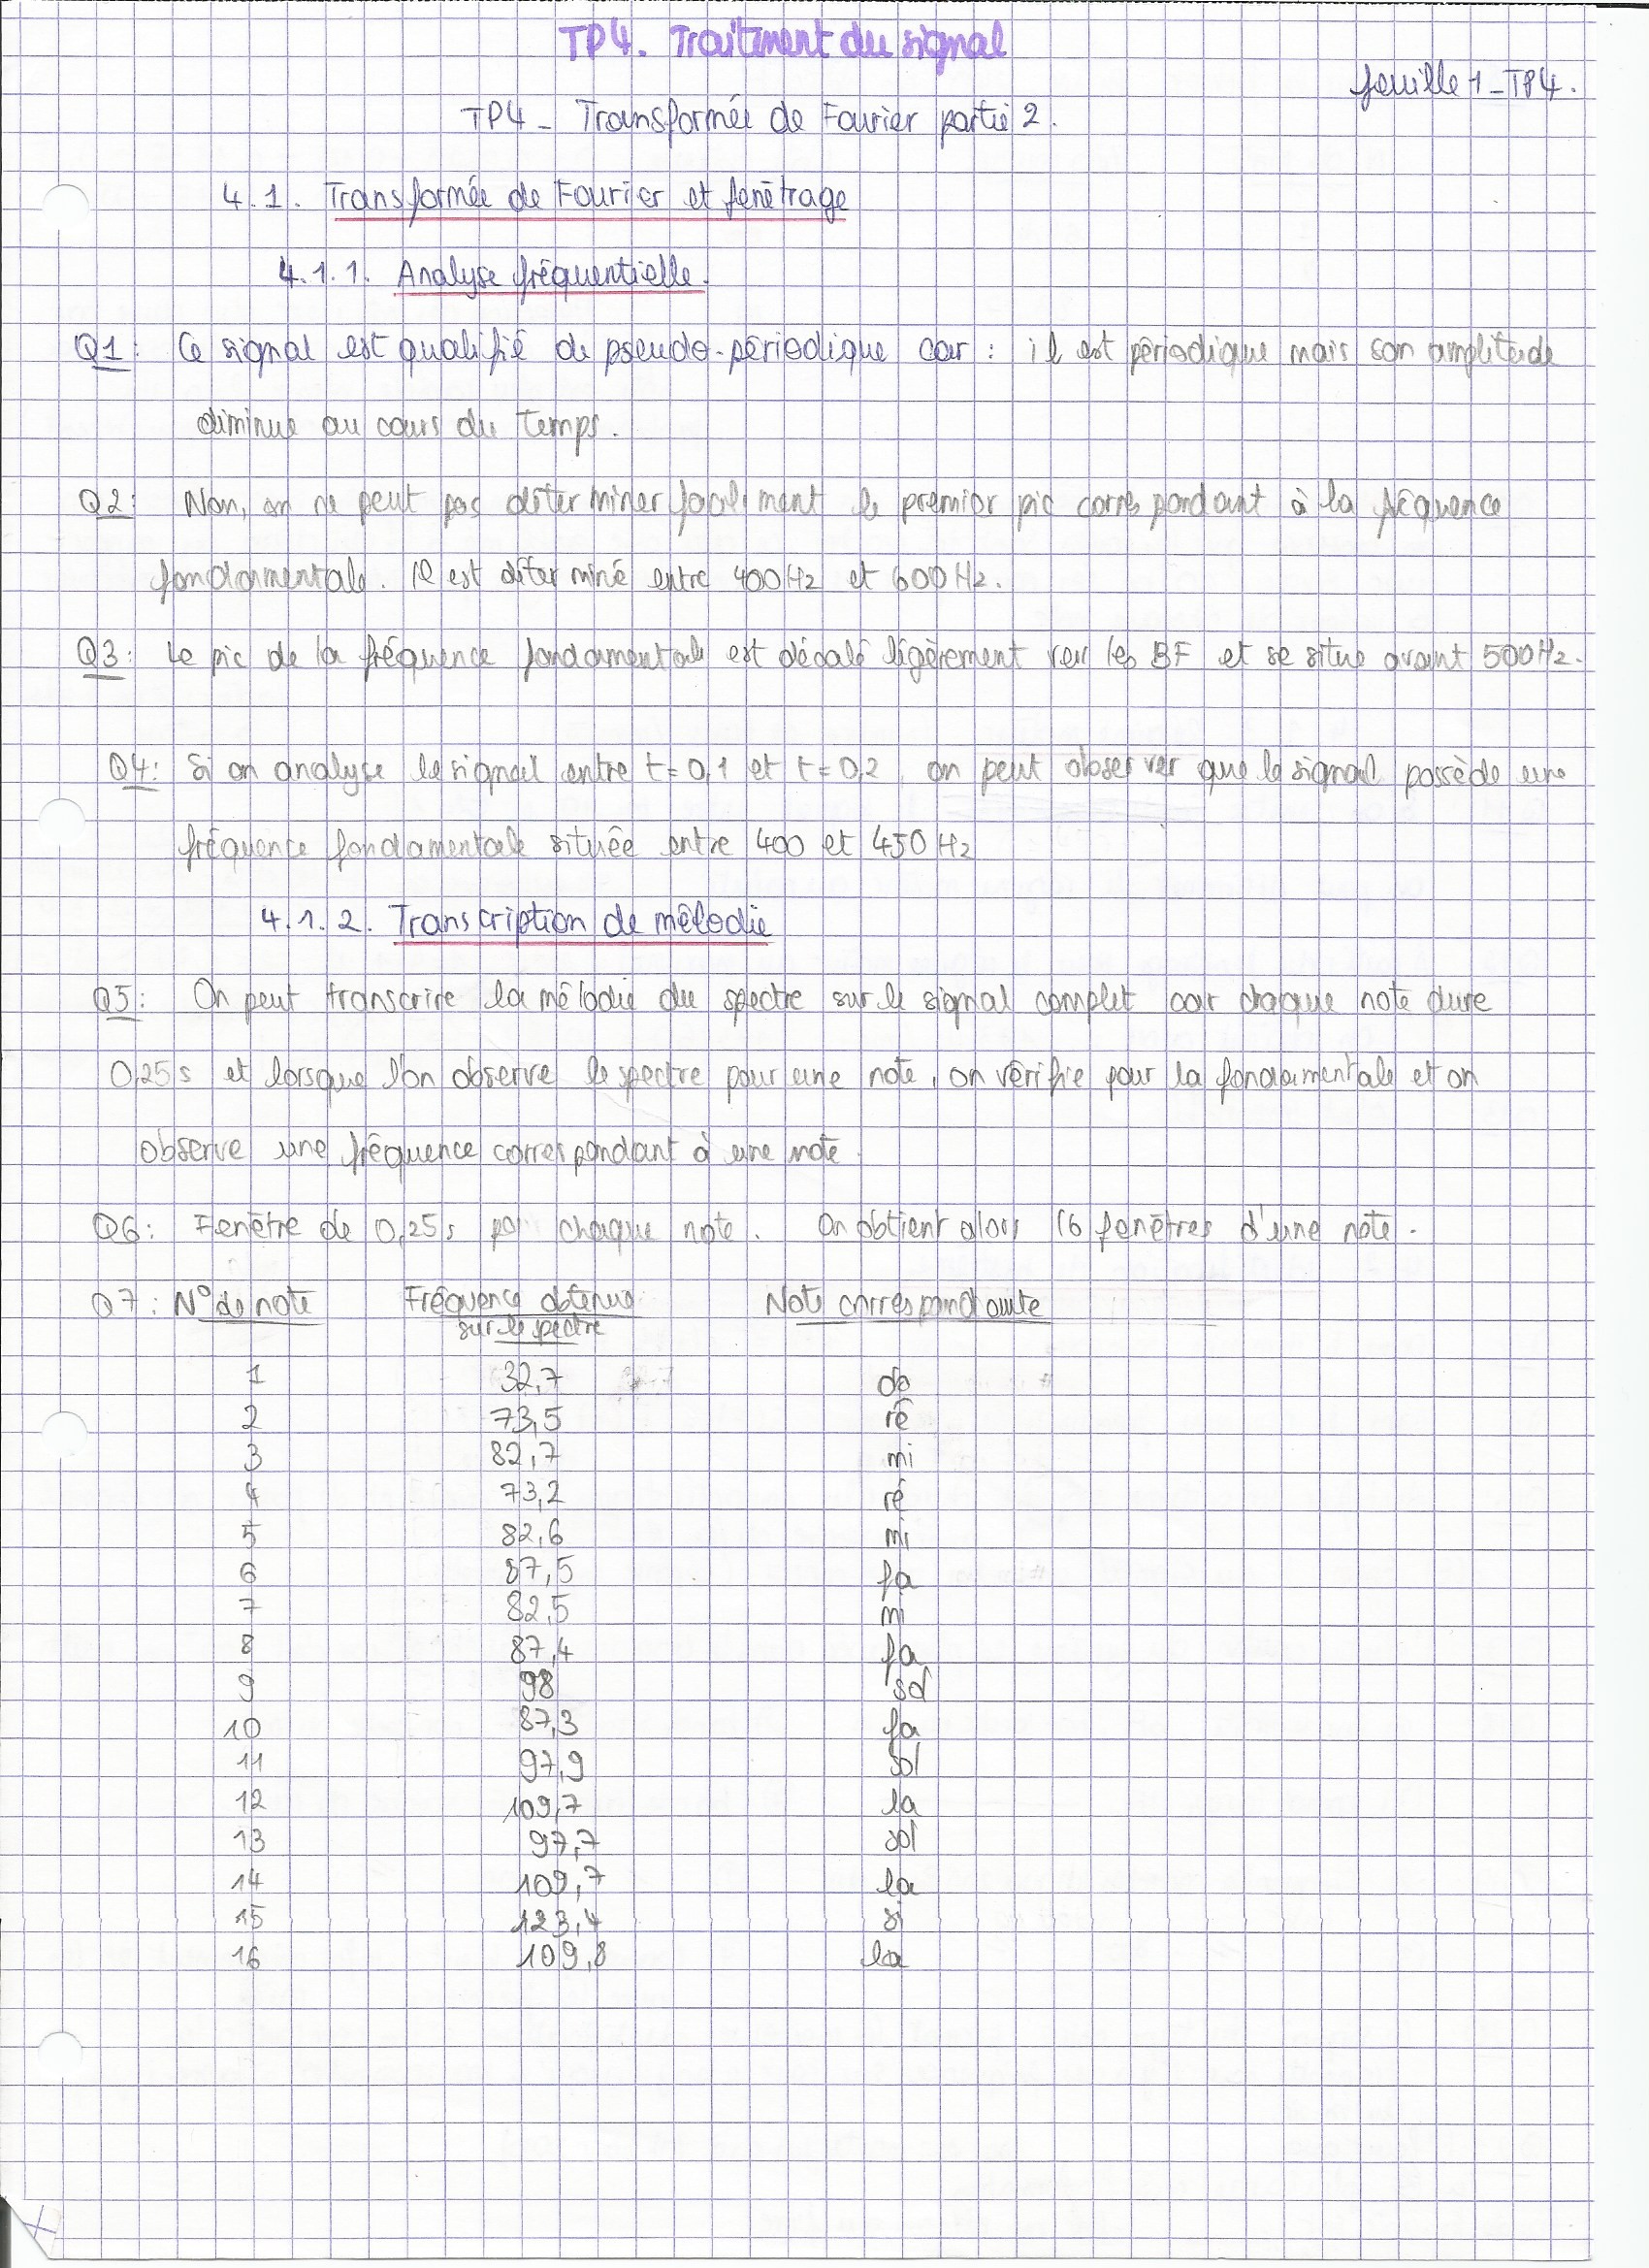 TP4. Traitment du signal
feuille 1_TP4.
TP4_ Transformée de Fourier partie 2.
4.1. Transformée de Fourier et fenêtrage
4.1.1. Analyse fréquentielle.
Q1: Ce signal est qualifié de pseudo-périodique car : il est périodique mais son amplitude
diminue au cours du temps.
Q2: Non, on ne peut pas déterminer facilement le premier pic correspondant à la fréquence
fondamentale. Il est déterminé entre 400Hz et 600Hz.
Q3: Le pic de la fréquence fondamentale est décalé légèrement vers les BF et se situe avant 500Hz.
Q4: Si on analyse le signal entre t=0,1 et t=0,2, on peut observer que le signal possède une
fréquence fondamentale située entre 400 et 450Hz
4.1.2. Transcription de mélodie
Q5: On peut transcrire la mélodie du spectre sur le signal complet car chaque note dure
0,25s et lorsque l'on observe le spectre pour une note, on vérifie pour la fondamentale et on
observe une fréquence correspondant à une note.
Q6: Fenêtre de 0,25s chaque note. On obtient alors 16 fenêtres d'une note.
Q7: N° de note Fréquence obtenue Note correspondante
sur le spectre
1 32,7 do
2 73,5 ré
3 82,7 mi
4 73,2 ré
5 82,6 mi
6 87,5 fa
7 82,5 mi
8 87,4 fa
9 98 sol
10 87,3 fa
11 97,9 sol
12 109,7 la
13 97,7 sol
14 109,7 la
15 123,4 si
16 109,8 la